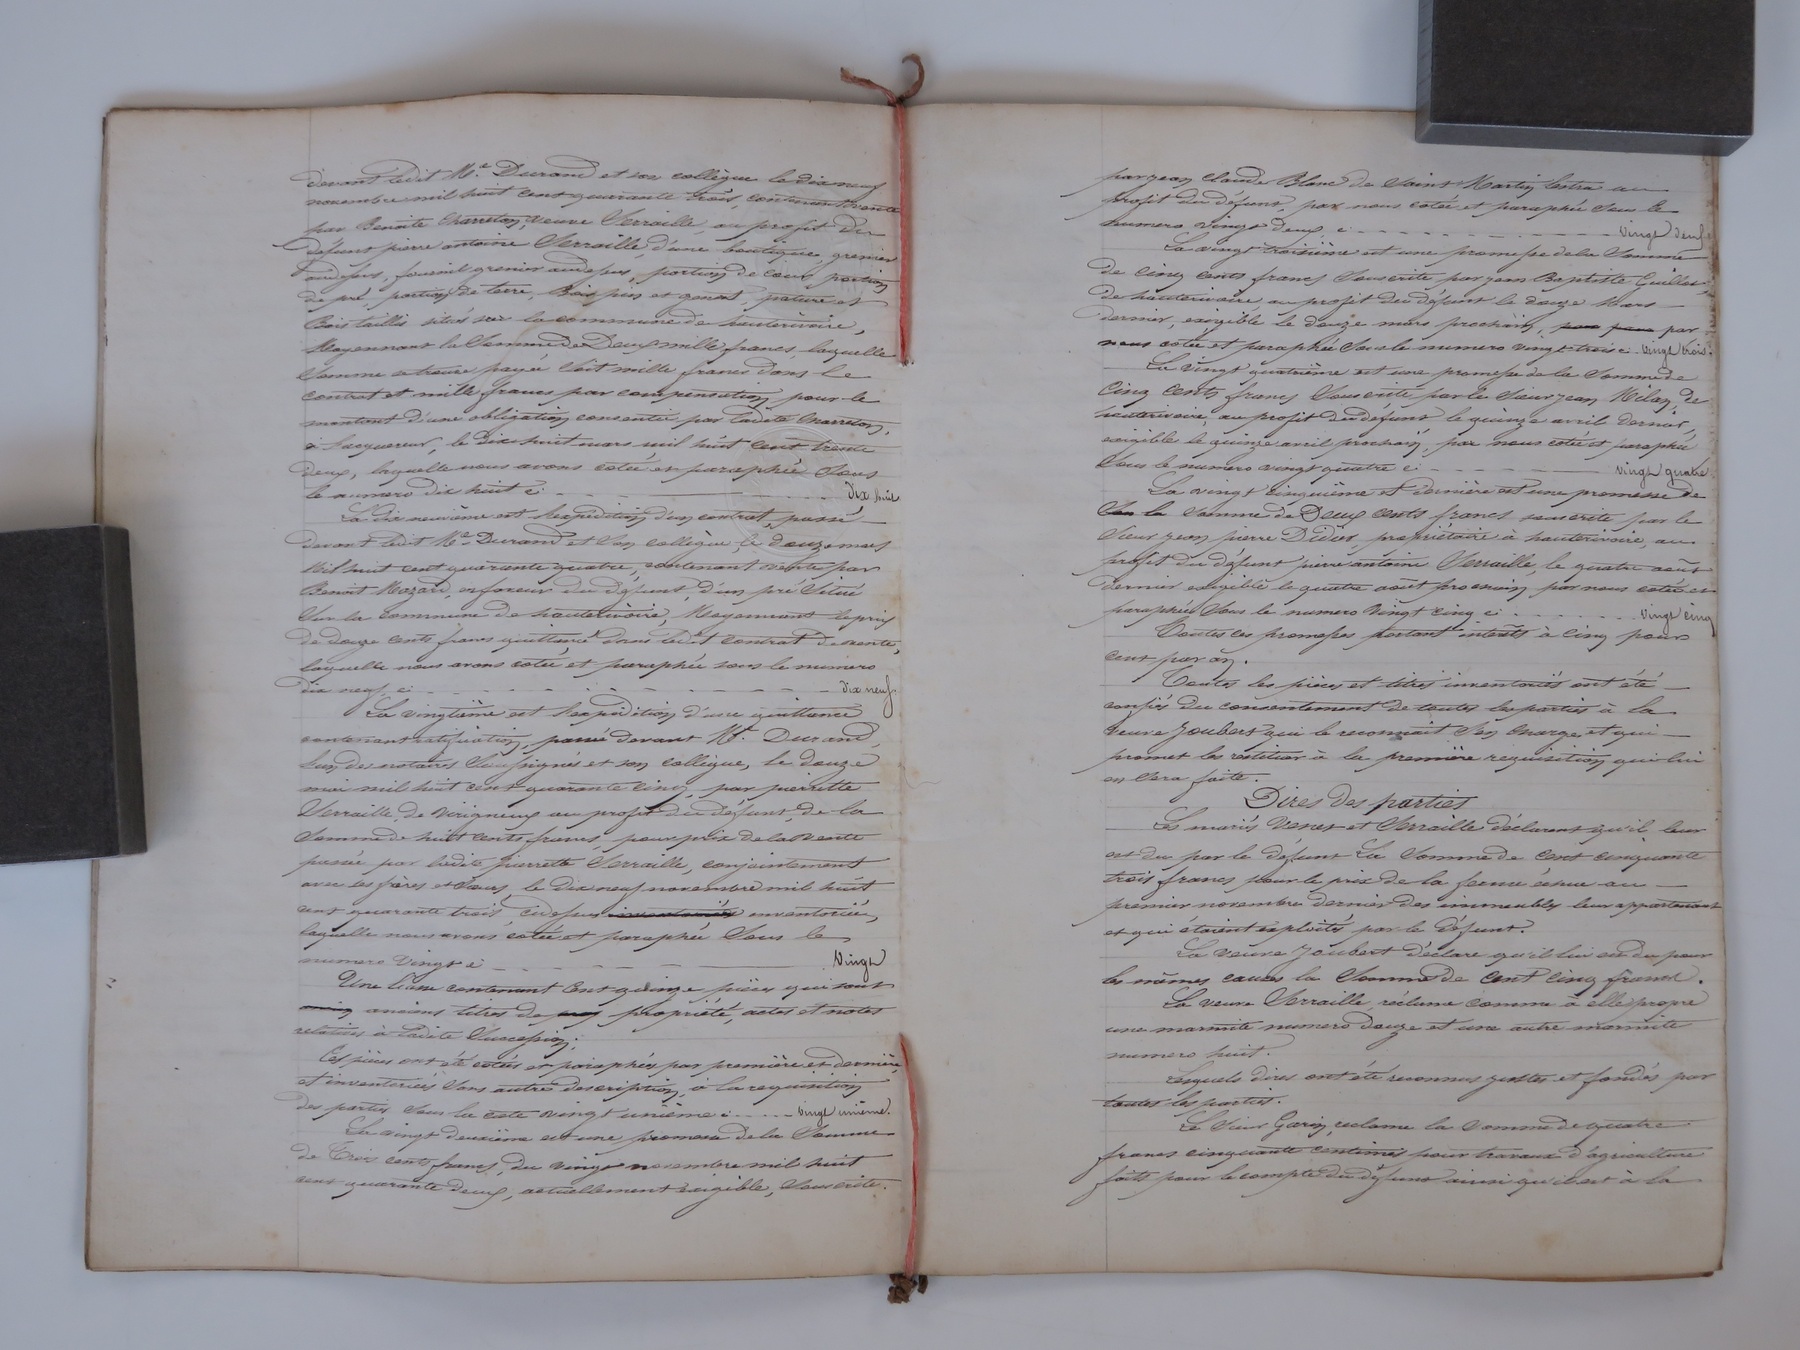 devant ledit Me. Durand et son collègue le dix neuf
novembre mil huit cent quarante trois, contenant vente
par Benoite Charreton, veuve Serraille, au profit du
défunt pierre antoine Serraille, d'une boutique, grenier
au dessus, fournil grenier au dessus, portion de cour, portion
de pré, portion de terre, Bois pins et genets, pature et
Bois taillis situés sur la commune de hauterivoire,
Moyennant la Somme de Deux mille francs, laquelle
Somme se trouve payée Soit mille francs dans le
contrat et mille francs par compensation pour le
montant d'une obligation consentie par ladite Charreton,
à l'acquereur, le dix huit mars mil huit cent trente
deux, laquelle nous avons cotée et paraphée Sous
le numero dix huit ci dix huit
La dix neuvième est l'expédition d'un contrat, passé
devant ledit Me. Durand et Son collègue, le douze mars
Mil huit cent quarante quatre, contenant vente par
Benoit Mazard, en faveur du défunt, d'un pré Situé
Sur la commune de hauterivoire, Moyennant le prix
de douze cents francs quittancé dans ledit contrat de vente,
laquelle nous avons cotée et paraphée sous le numero
dix neuf, ci dix neuf
La vingtième est l'expédition d'une quittance
contenant ratification, passée devant Me. Durand,
l'un des notaires Soussignés et son collègue, le douze
mai mil huit cent quarante cinq, par pierrette
Serraille, de Virigneux au profit du défunt, de la
Somme de huit cents francs, pour prix de la vente
passée par ladite pierrette Serraille, conjointement
avec ses frères et Sœurs, le dix neuf novembre mil huit
cent quarante trois, ci dessus inventoriée inventoriée,
laquelle nous avons cotée et paraphée Sous le
numero Vingt ci Vingt
Une liasse contenant Cent quinze pièces qui sont
anciens titres de propriété, actes et notes
relatives à ladite Succession;
Ces pièces ont été cotées et paraphées par première et dernière
et inventoriées Sans autre description, à la requisition
des parties Sous la cote vingt unième ci vingt unième.
La vingt deuxième est une promesse de la Somme
de Trois cents francs, du vingt novembre mil huit
cent quarante deux, actuellement exigible, Souscrite.
par jean claude Blanc de Saint Martin lestra au
profit du défunt, par nous cotée et paraphée Sous le
numero vingt deux, ci vingt deux
La vingt troisième est une promesse de la Somme
de cinq cents francs Souscrite par jean Baptiste Guillet
de hauterivoire au profit du défunt le douze Mars
dernier, exigible le douze mars prochain, par
nous cotée et paraphée Sous le numero vingt trois ci vingt trois.
La vingt quatrième est une promesse de la Somme de
Cinq Cents francs Souscrite par le Sieur jean Milan, de
hauterivoire, au profit du défunt le quinze avril dernier,
exigible le quinze avril prochain, par nous cotée et paraphée
Sous le numero vingt quatre ci vingt quatre
La vingt cinquième et dernière est une promesse de
la somme de Deux cents francs souscrite par le
Sieur jean pierre Didier, propriétaire à hauterivoire, au
profit du défunt pierre antoine Serraille, le quatre août
dernier exigible le quatre août prochain, par nous cotée et
paraphée Sous le numero Vingt cinq ci vingt cinq
Toutes ces promesses portant intérêts à Cinq pour
cent par an.
Toutes les pièces et titres inventoriés ont été
confiés du consentement de toutes les parties à la
veuve Joubert qui le reconnait S'en charge et qui
promet les restituer à la première requisition qui lui
en sera faite.
Dires des parties
Les mariés Venet et Serraille déclarent qu'il leur
est du par le défunt La Somme de cent cinquante
trois francs pour le prix de la ferme échue au
premier novembre dernier des immeubles leur appartenant
et qui étaient exploités par le défunt.
La veuve Joubert déclare qu'il lui est du pour
les mêmes causes la Somme de Cent cinq francs.
La veuve Serraille, réclame comme à elle propre
une marmite numero douze et une autre marmite
numero huit.
Lesquels dires ont été reconnus justes et fondés par
toutes les parties.
Le Sieur Garin, réclame la Somme de quatre
francs cinquante centimes pour travaux d'agriculture
faits pour le compte du défunt ainsi qu'il est à la